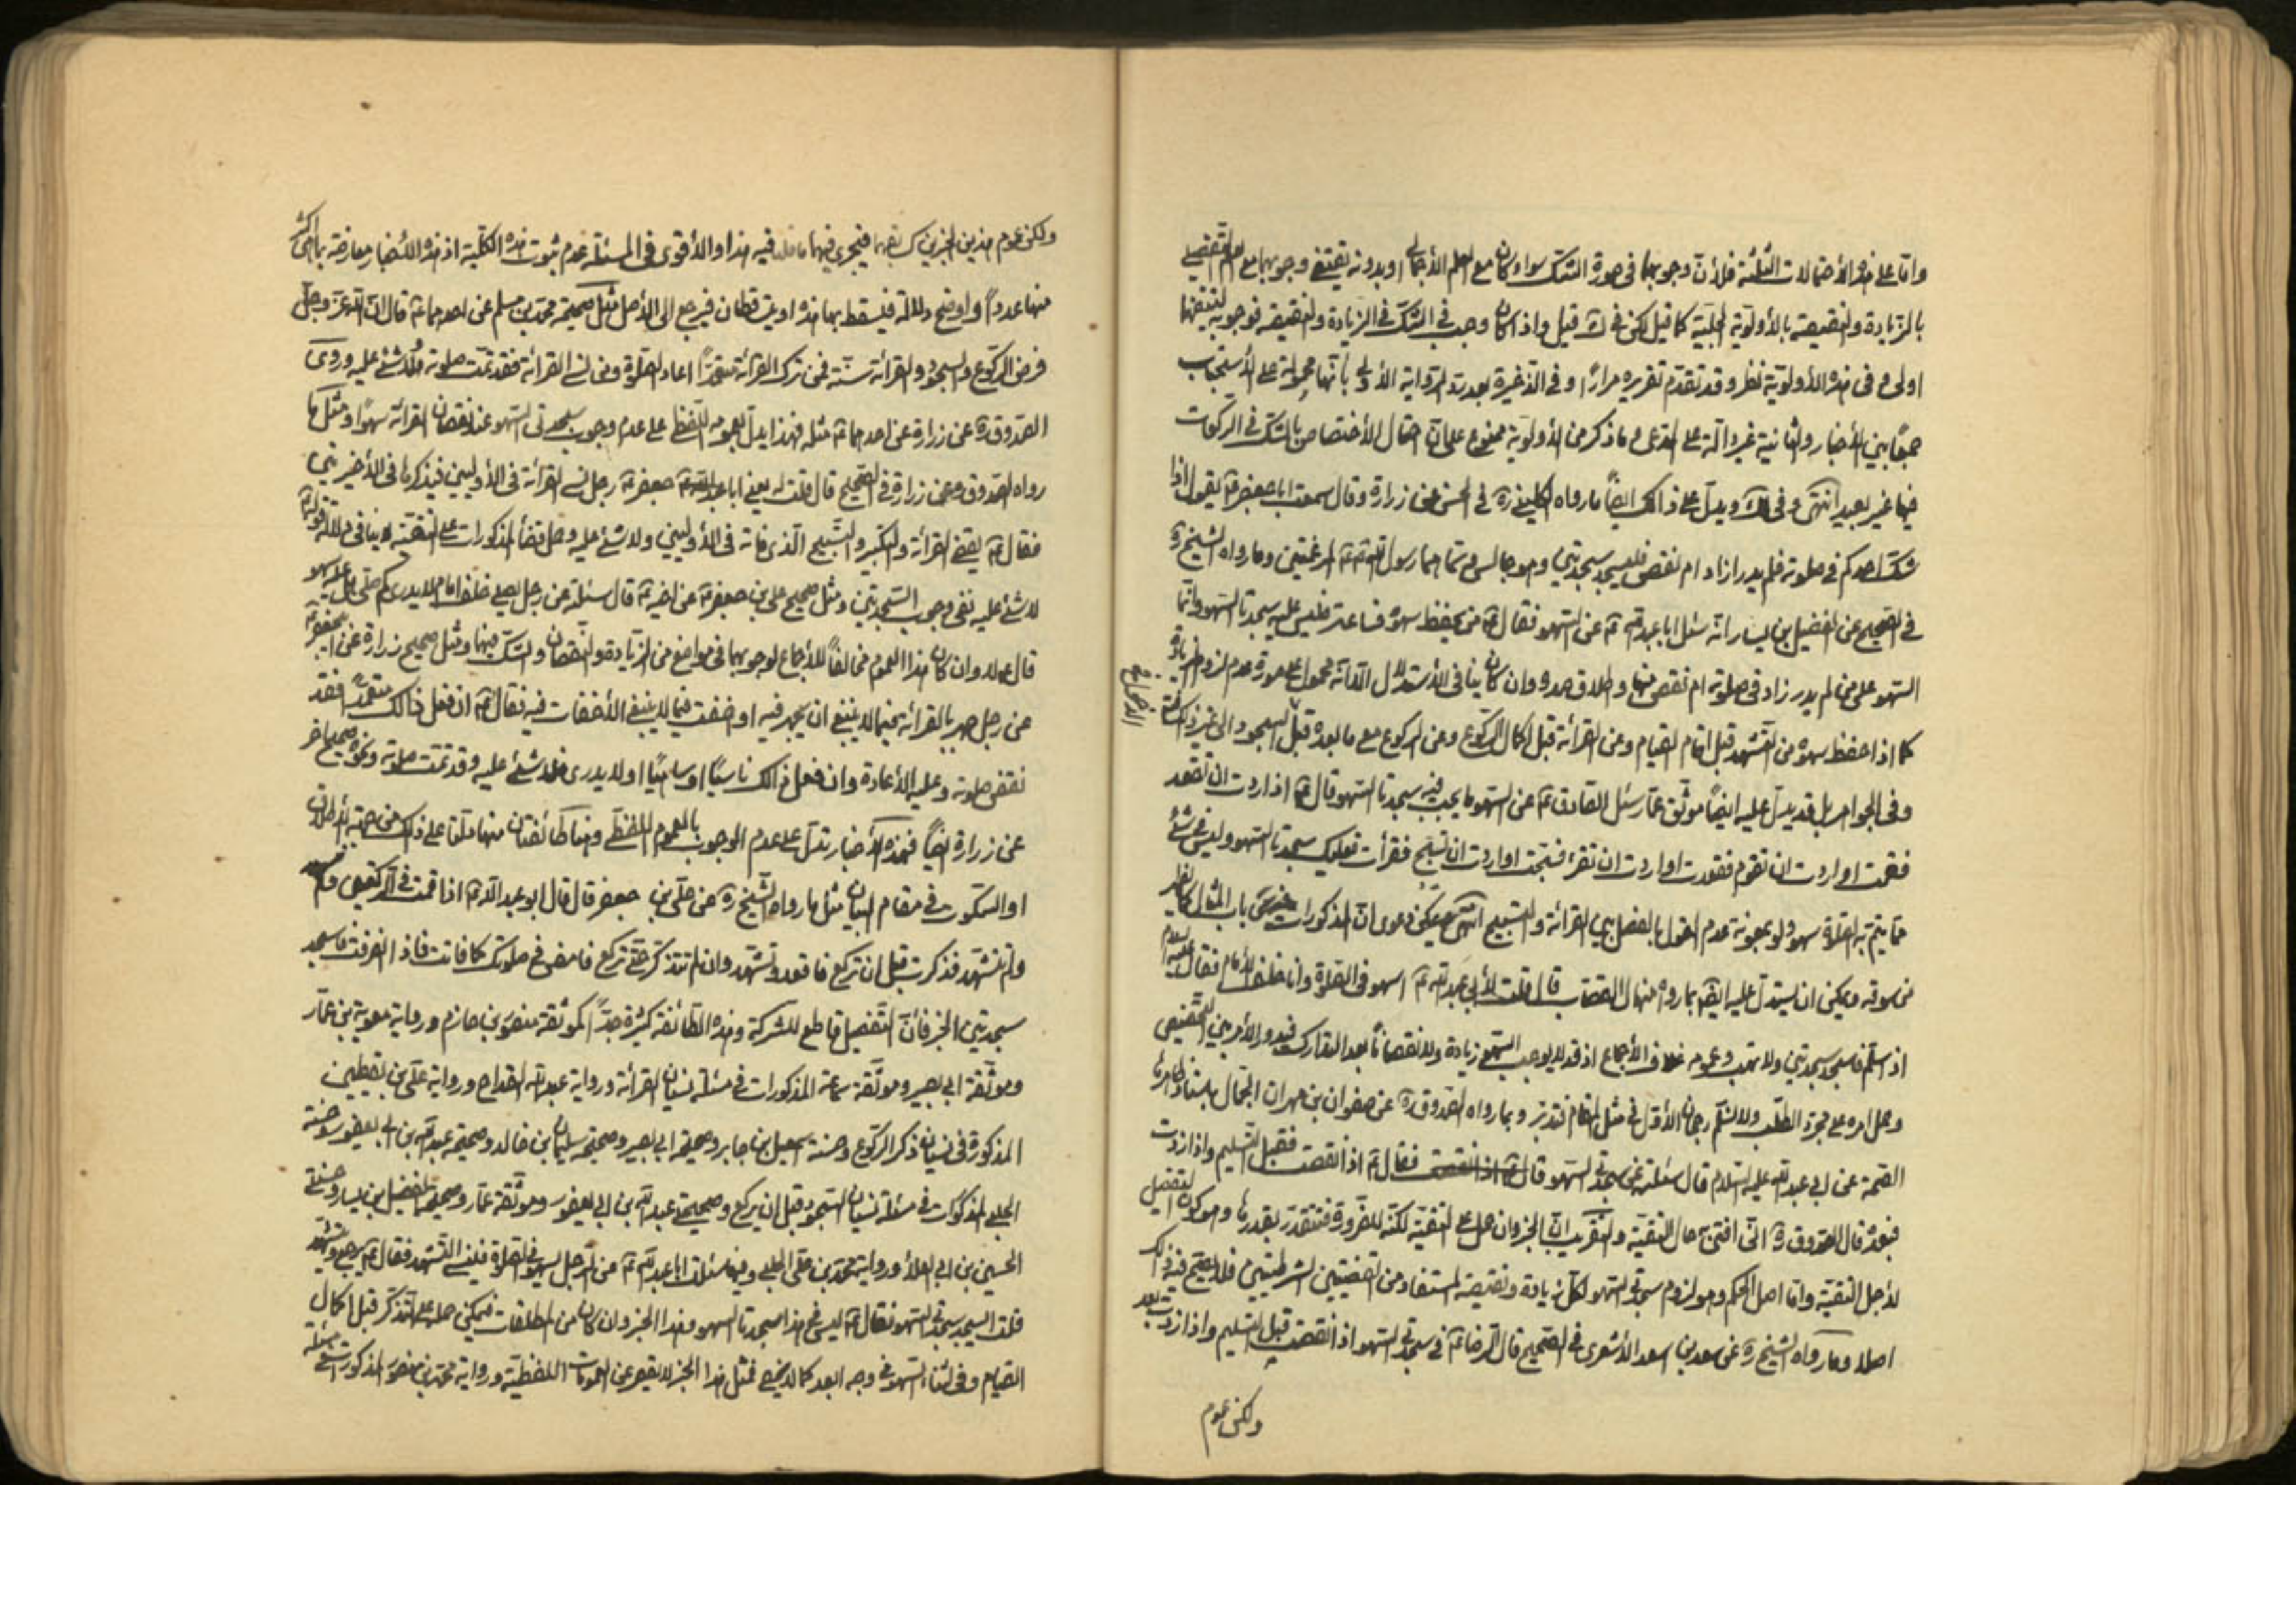 واما على هذه الاحتمالات الثلثة فلأن وجوبها فى صورة الشك سواء كان مع العلم الاجمالى او بدونه يقتضى وجوبها مع العلم التفصيلى
بالزيادة والنقيصة بالأولوية كما قيل لكن فى قيل واذا كان وجب فى الشك فى الزيادة والنقيصة فوجوبه لتيقنها
اولى و فى هذه الأولوية نظر وقد تقدم تقريره مرارًا وفى الذخيرة بعد الرواية الأولى بأنها محمولة على الأستحباب
جمعًا بين الأخبار والثانية غير دالة على المدعى و ما ذكر من الأولوية ممنوع على ان احتمال الأختصاص بالشك فى الركعات
فيها غير بعيد انتهى و فى ويدل على ذالك ايضًا ما رواه الكلينى ره فى الحسن عن زرارة وقال سمعت ابا جعفر ع يقول اذا
شك احدكم فى صلوته فلم يدر ازاد ام نقص فليسجد سجدتين وهو جالس و سماهما رسول الله المرغمتين وما رواه الشيخ ره
فى الصحيح عن الفضيل بن يسار انه سئل ابا عبد الله ع عن السهو فقال ع من يحفظ سهوه فليس عليه سجدتا السهو وانما
السهو على من لم يدر زاد فى صلوته ام نقص منها واطلاق وان كان ينافى الاستدلال الا انه محمول على صورة عدم لزوم
كما اذا حفظ سهوه من التشهد قبل اتمام القيام وعن القرائة قبل اكمال الركوع وعن الركوع مع ما بعده قبل السجود الى غير ذلك
وفى الجواهر بل قد يدل عليه ايضًا موثق عمار سئل الصادق ع عن السهو ما يجب فيه سجدتا السهو قال ع اذا اردت ان تقعد
فقمت او اردت ان تقوم فقعدت او اردت ان تقرء فسبحت او اردت ان تسبح فقرأت فعليك سجدتا السهو وليس فى شئ
مما يتم به الصلوة سهو ولو بمعونة عدم القول بالفصل بين القرائة والتسبيح انتهى دعوى ان المذكورات من باب المثال
من سوقه ويمكن ان يستدل عليه ايضًا بما رواه منهال القصاب قال قلت لأبى عبد الله ع اسهو فى الصلوة وانا خلف الأمام فقال عليه السلام
اذا سلم فاسجد سجدتين ولا تهب وعموم خلاف الأجماع اذ قد لا يوجب السهو زيادة ولا نقصانًا بعد التدارك فيدور الأمر بين التخصيص
وحمل امره على مجرد الطلب ولا نسلم رجحان الأول فى مثل المقام فتدبر وبما رواه الصدوق ره عن صفوان بن مهران الجمال
الصحة عن ابى عبد الله عليه السلام قال سئلته عن سجدتى السهو فقال ع اذا نقصت فقبل التسليم واذا زدت
فبعده قال الصدوق ره انى افتى به حال التقية والتقريب ان الخبر وان حمل على التقية لكنه للضرورة فتقدر بقدرها وهو كون التفصيل
لأجل التقية واما اصل الحكم وهو لزوم سجدتى السهو لكل زيادة ونقيصة المستفاد من القضيتين الشرطيتين فلا تقية فيه ذالك
اصلا وما رواه الشيخ ره عن سعد بن سعد الأشعرى فى الصحيح قال الرضا ع فى سجدتى السهو اذا نقصت قبل التسليم واذا زدت بعد
ولكن عموم
ولكن عموم هذين الخبرين فيجرى فيهما فيه هذا والأقوى فى المسئلة عدم ثبوت هذه الكلية اذ هذه الأخبار معارضة بما هى اكثر
منها عددًا واوضح دلالة فيسقط بها هذه او يتساقطان فيرجع الى الأصل مثل صحيحة محمد بن مسلم عن احدهما ع قال ان الله عز وجل
فرض الركوع والسجود والقرائة سنة فمن ترك القرائة متعمدًا اعاد الصلوة ومن نسى القرائة فقد تمت صلوته فلا شئ عليه وروى
الصدوق ره عن زرارة عن احدهما ع مثله فهذا يدل بعمومه اللفظى على عدم وجوب سجدتى السهو عند نقصان القرائة سهوًا ومثلها
رواه الصدوق عن زرارة فى الصحيح قال قلت له يعنى ابا جعفر ع رجل نسى القرائة فى الأوليين فيذكرها فى الأخيرتين
فقال ع يقضى القرائة والتكبير والتسبيح الذى فاته فى الأوليين ولا شئ عليه وحمل قضاء المذكورات على التقية لا ينافى دلالة قوله
لا شئ عليه نفى وجوب السجدتين ومثل صحيح على بن جعفر ع عن اخيه ع قال سئلته عن رجل يصلى خلف امام لا يدرى كم صلى هل عليه سهو
قال ع لا وان كان هذا العموم مخالفًا للأجماع لوجوبهما فى مواضع من الزيادة والنقصان والشك فيها ومثل صحيح زرارة عن ابى جعفر ع
عن رجل جهر بالقرائة فيما لا ينبغى ان يجهر فيه او اخفت فيما لا ينبغى الأخفات فيه فقال ع ان فعل ذالك متعمدًا فقد
نقض صلوته وعليه الأعادة وان فعل ذالك ناسيًا او ساهيًا او لا يدرى فلا شئ عليه وقد تمت صلوته ونحوه صحيح اخر
عن زرارة ايضًا فهذه الأخبار تدل على عدم الوجوب بالعموم اللفظى وهنا طائفتان منها دلتا على ذلك من جهة الأطلاق
او السكوت فى مقام البيان مثل ما رواه الشيخ ره عن على بن جعفر قال قال ابو عبد الله ع اذا قمت فى الركعتين
ولم تتشهد فذكرت قبل ان تركع فاقعد وتشهد وان لم تتذكر حتى تركع فامض فى صلوتك كما فانت فاذا انصرفت فاسجد
سجدتين الخبر فأن التفصيل قاطع للشركة وهذه الطائفة كثيرة جدًا كموثقة منصور بن حازم ورواية معوية بن عمار
وموثقة ابى بصير وموثقة سماعة المذكورات فى مسئلة نسيان القرائة ورواية عبد الله القداح ورواية على بن يقطين
المذكورة فى نسيان ذكر الركوع وحسنة اسمعيل بن جابر وصحيحة ابى بصير وصحيحة سليمان بن خالد وصحيحة عبد الله بن ابى يعفور وحسنة
الحلبى المذكورات فى مسئلة نسيان السجود قبل ان يركع وصحيحتى عبد الله بن ابى يعفور وموثقة عمار وصحيحة الفضيل بن يسار وحسنتى
الحسين بن ابى العلاء ورواية محمد بن على الحلبى وفيها سئلت ابا عبد الله ع عن الرجل يسهو فى الصلوة فينسى التشهد فقال ع يرجع ويتشهد
قلت ايسجد سجدتى السهو فقال ع ليس فى هذا سجدتا السهو وهذا الخبر وان كان من المطلقات فيمكن حمله على التذكر قبل اكمال
القيام وفى اثناء السهو وجه ابعد كما لا يخفى فمثل هذا الخبر لا يقصر عن العمومات اللفظية ورواية محمد بن منصور المذكورة فى مسئلة